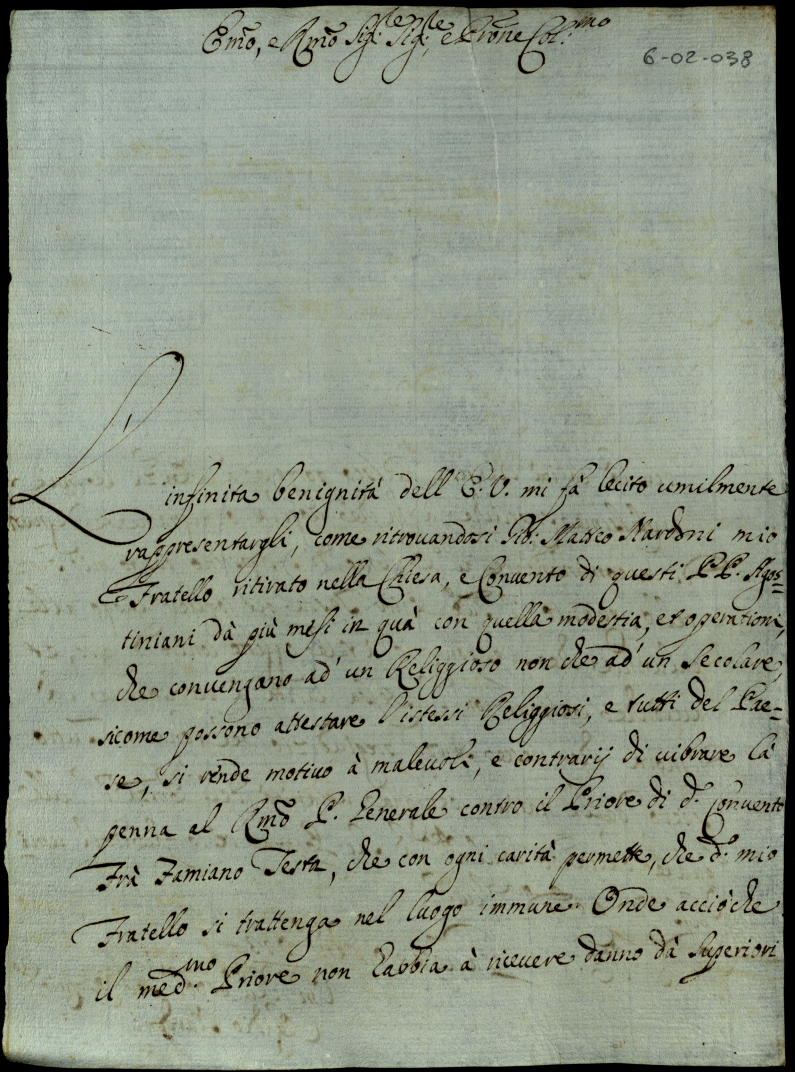 Em̃o, e Rm̃o Sig.re Sig.re, e Pr̃one Col.mo
6-02-038
L'infinita benignità dell'E. V. mi fà lecito umilmente
rappresentargli, come ritrovandosi Gio: Matteo Nardini mio
Fratello ritirato nella Chiesa, e Convento di questi PP. Agos=
tiniani dà più mesi in quà con quella modestia, et operationi,
che convengano ad' un Religgioso non che ad' un Secolare,
sicome possono attestare l'istessi Religgiosi, e tutti del Pae=
se, si rende motivo à malevoli, e contrarij di vibrare la
penna al Rm̃o P. Generale contro il Priore di d.o Convento
Frà Famiano Testa, che con ogni carità permette, che d.o mio
Fratello si trattenga nel luogo immune. Onde acciòche
il med.mo Priore non habbia à ricevere danno dà Superiori